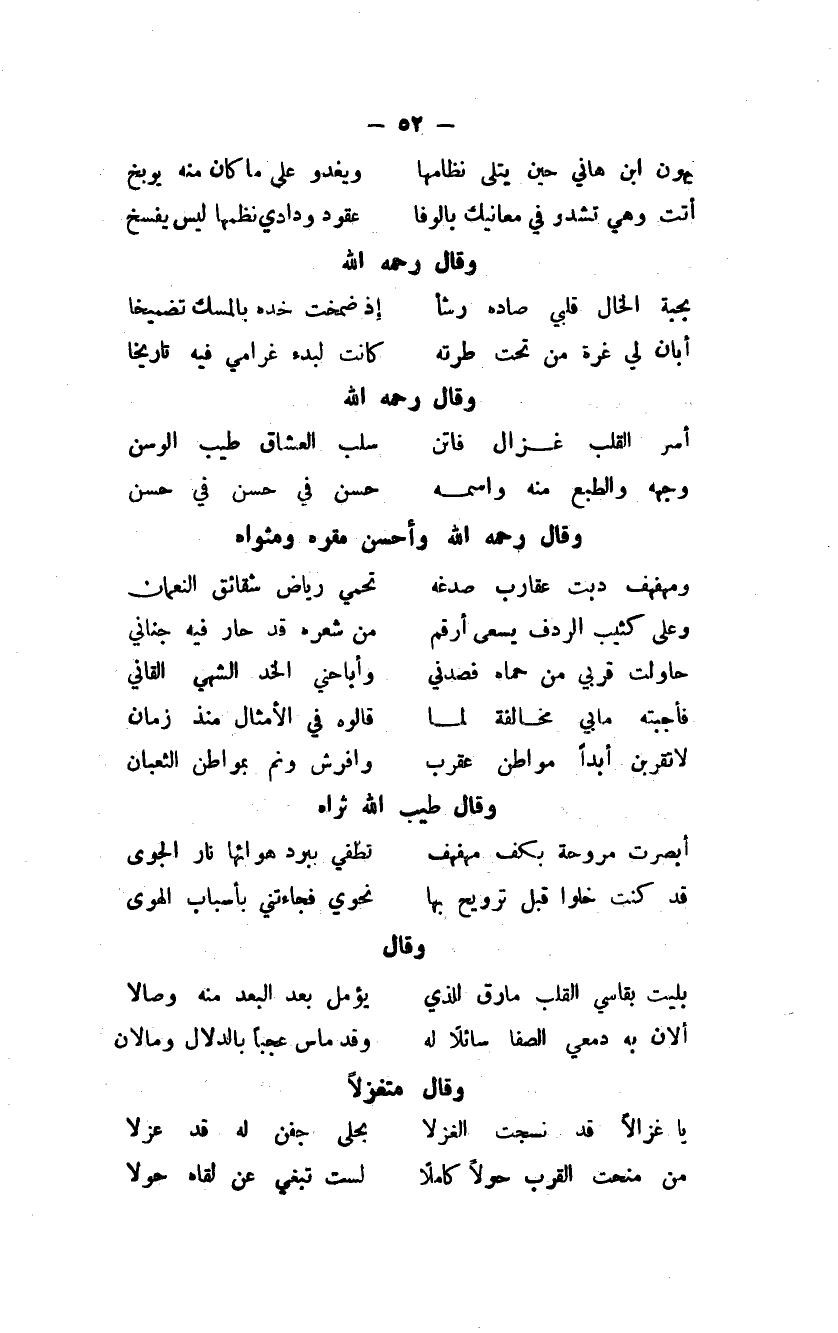 — ٥٢ —
يهون ابن هاني حين يتلى نظامها ويغدو على ماكان منه يوبخ
أتت وهي تشدو في معانيك بالوفا عقود ودادي نظمها ليس يفسخ
وقال رحمه الله
بحبة الخال قلبي صاده رشأ إذ ضمخت خده بالمسك تضميخا
أبان لي غرة من تحت طرته كانت لبدء غرامي فيه تاريخا
وقال رحمه الله
أسر القلب غـــزال فاتن سلب العشاق طيب الوسن
وجهه والطبع منه واسمـــه حسن في حسن في حسن
وقال رحمه الله وأحسن مقره ومثواه
ومهفهف دبت عقارب صدغه تحمي رياض شقائق النعمان
وعلى كثيب الردف يسعى أرقم من شعره قد حار فيه جناني
حاولت قربي من حماه فصدني وأباحني الخد الشهي القاني
فأجبته مابي مخـالفة لمـــا قالوه في الأمثال منذ زمان
لاتقربن أبداً مواطن عقرب وافرش ونم بمواطن الثعبان
وقال طيب الله ثراه
أبصرت مروحة بكف مهفهف تطفي ببرد هوائها نار الجوى
قد كنت خلوا قبل ترويح بها نحوي فجاءتني بأسباب الهوى
وقال
بليت بقاسي القلب مارق للذي يؤمل بعد البعد منه وصالا
ألان به دمعي الصفا سائلًا له وقد ماس عجباً بالدلال ومالان
وقال متغزلاً
يا غزالاً قد نسجت الغزلا بحلى جفن له قد عزلا
من منحت القرب حولاً كاملًا لست تبغي عن لقاه حولا